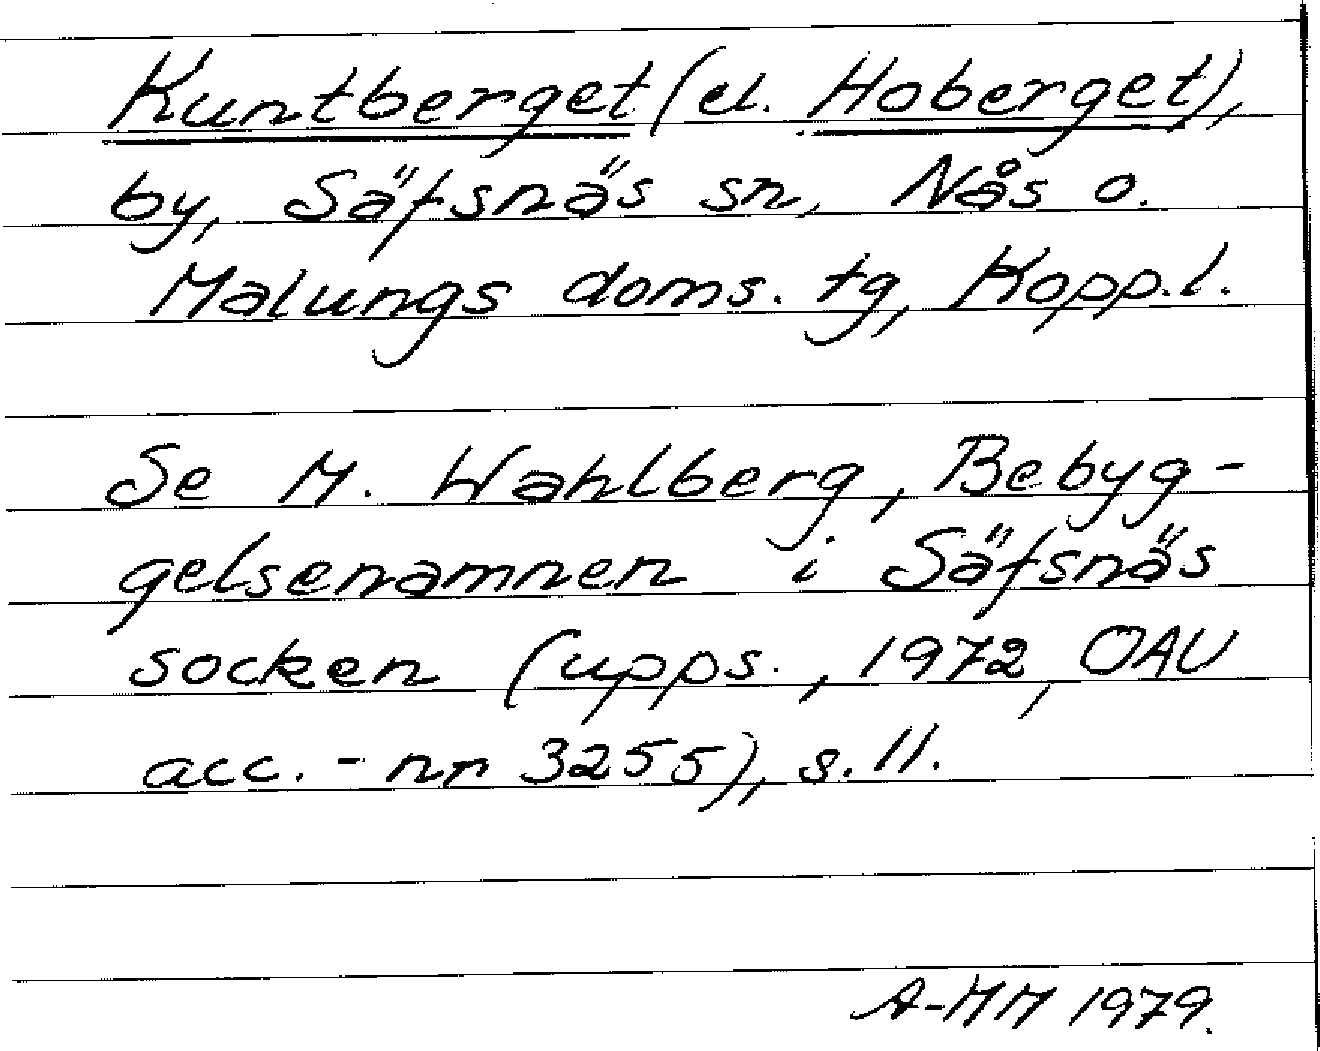 Kuntberget (el. Hoberget),
by, Säfsnäs sn, Nås o.
Malungs doms. tg, Kopp.l.
Se M. Wahlberg, Bebyg-
gelsenamnen i Säfsnäs
socken (upps., 1972, OAU
acc.-nr 3255), s. 11.
A-MM 1979.